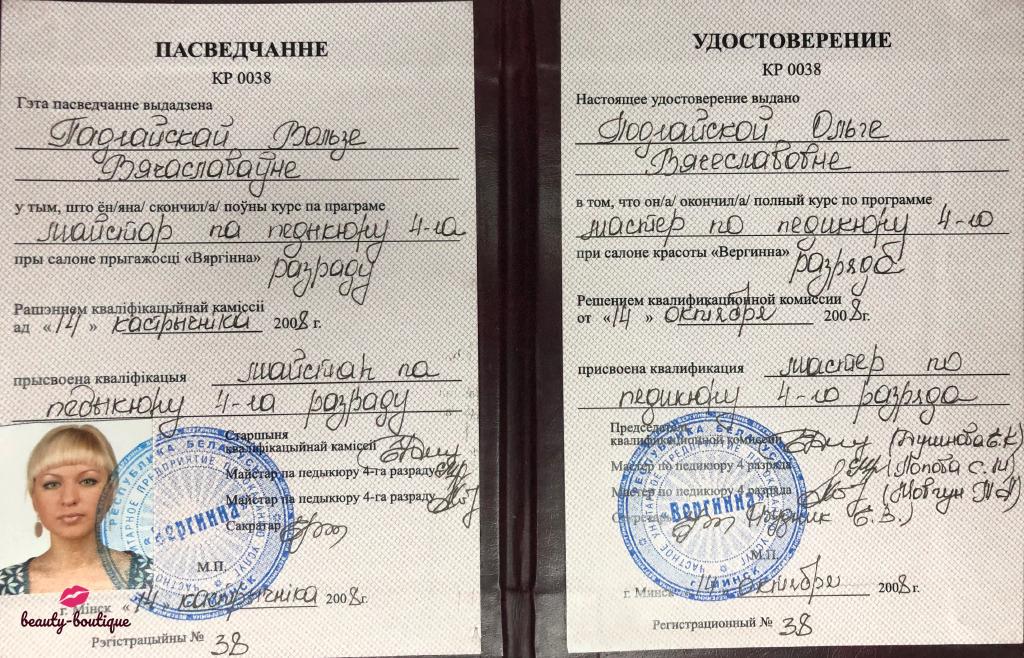 ПАСВЕДЧАННЕ
КР 0038
Гэта пасведчанне выдадзена
Падгайскай Вользе
Вячаславаўне
у тым, што ён/яна/ скончил/а/ поўны курс па праграме
майстар па педыкюру 4-га
пры салоне прыгажосці «Вяргінна» разраду
Рашэннем кваліфікацыйнай каміссіі
ад «14» кастрычніка 2008 г.
прысвоена кваліфікацыя майстар па
педыкюру 4-га разраду
Старшыня
квалифікацыйнай камісеі
Майстар па педыкюру 4-га разраду
Майстар па педыкюру 4-га разраду
Сакратар
М.П.
г. Мінск «14» кастрычніка 2008г.
Рэгістрацыйны № 38
beauty-boutique
УДОСТОВЕРЕНИЕ
КР 0038
Настоящее удостоверение выдано
Подгайской Ольге
Вячеславовне
в том, что он/а/ окончил/а/ полный курс по программе
мастер по педикюру 4-го
при салоне красоты «Вергинна» разряда
Решением квалификационной комиссии
от «14» октября 2008г.
присвоена квалификация мастер по
педикюру 4-го разряда
Председатель
квалификационной комиссии
Мастер по педикюру 4 разряда (Попова С.
Мастер по педикюру 4 разряда (Мовчун
«Вергинна»
М.П.
г. Минск «14» октября 2008г.
Регистрационный № 38